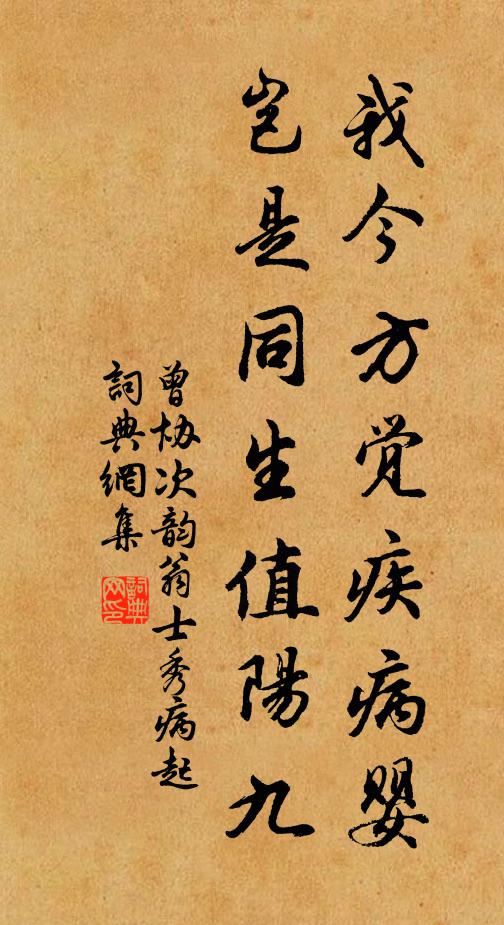 我今方觉疾病婴
岂是同生值陽九
曾协次韵翁士秀病起
詞典網集
詞典网印